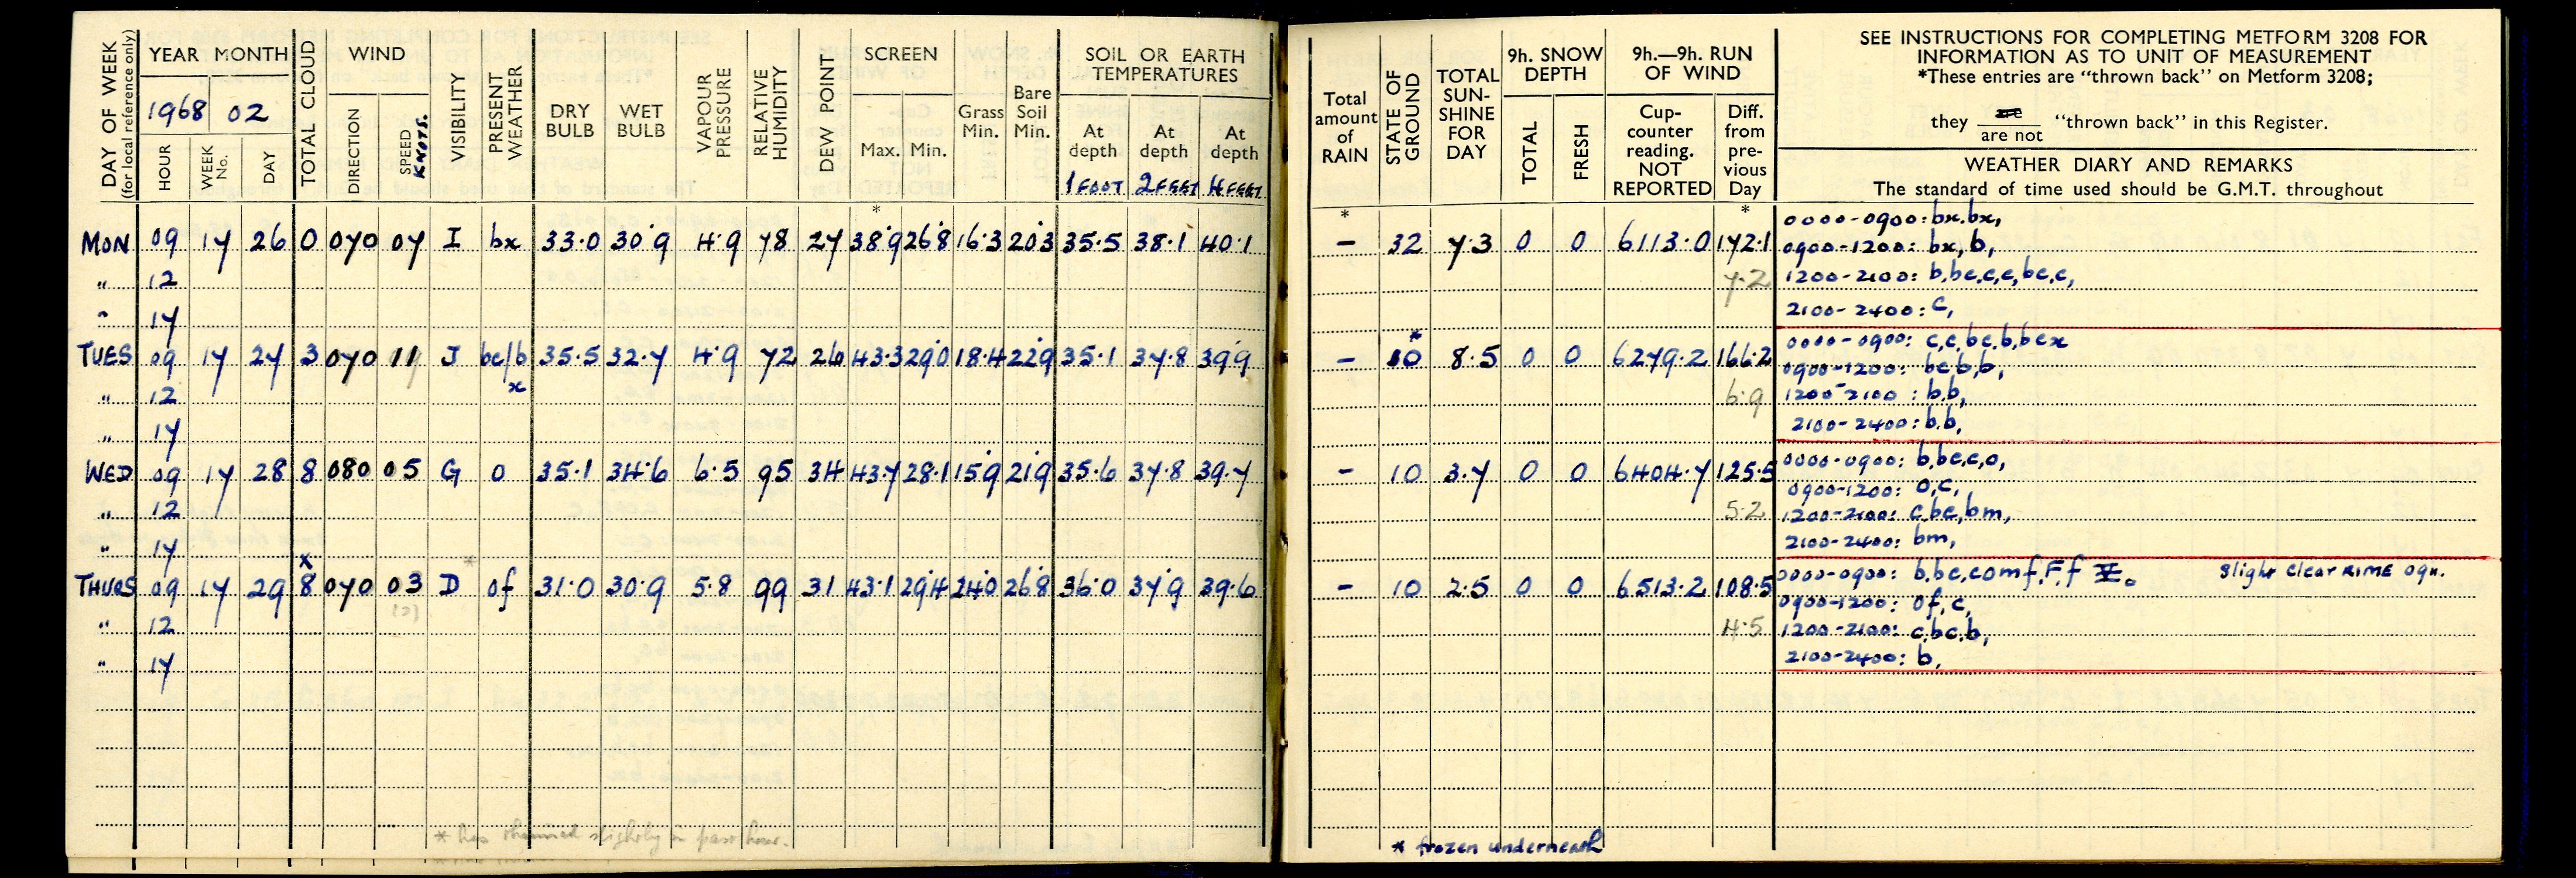 DAY OF WEEK (for local reference only)
YEAR MONTH
1968 02
HOUR WEEK No. DAY
TOTAL CLOUD
WIND
DIRECTION SPEED KNOTS.
VISIBILITY
PRESENT WEATHER
DRY BULB
WET BULB
VAPOUR PRESSURE
RELATIVE HUMIDITY
DEW POINT
SCREEN
Max. Min.
Grass Min.
Bare Soil Min.
SOIL OR EARTH TEMPERATURES
At depth 1 FOOT
At depth 2 FEET
At depth 4 FEET
Total amount of RAIN
STATE OF GROUND
TOTAL SUN-SHINE FOR DAY
9h. SNOW DEPTH
TOTAL FRESH
9h.—9h. RUN OF WIND
Cup-counter reading. NOT REPORTED
Diff. from pre-vious Day
SEE INSTRUCTIONS FOR COMPLETING METFORM 3208 FOR
INFORMATION AS TO UNIT OF MEASUREMENT
*These entries are "thrown back" on Metform 3208;
they are / are not "thrown back" in this Register.
WEATHER DIARY AND REMARKS
The standard of time used should be G.M.T. throughout
* * *
MON 09 17 26 0 070 07 I bx 33.0 30.9 4.9 78 27 38.9 26.8 16.3 20.3 35.5 38.1 40.1 – 32 7.3 0 0 6113.0 172.1
0000-0900: bx.bx,
0900-1200: bx,b,
" 12 7.2 1200-2100: b,bc,c,c,bc,c,
" 17 2100-2400: c,
TUES 09 17 27 3 070 11 J bc/b x 35.5 32.7 4.9 72 26 43.3 29.0 18.4 22.9 35.1 37.8 39.9 – *10 8.5 0 0 6279.2 166.2
0000-0900: c,c,bc,b,bcx
0900-1200: bc,b,b,
" 12 6.9 1200-2100: b.b,
" 17 2100-2400: b.b,
WED 09 17 28 8 080 05 G o 35.1 34.6 6.5 95 34 43.7 28.1 15.9 21.9 35.6 37.8 39.7 – 10 3.7 0 0 6404.7 125.5
0000-0900: b,bc,c,o,
0900-1200: o,c,
" 12 5.2 1200-2100: c,bc,bm,
" 17 2100-2400: bm,
THURS 09 17 29 x8 070 03 * D of 31.0 30.9 5.8 99 31 43.1 29.4 24.0 26.8 36.0 37.9 39.6 – 10 2.5 0 0 6513.2 108.5
0000-0900: b,bc,comf,F,f Slight clear RIME 09h.
0900-1200: of,c,
" 12 4.5 1200-2100: c,bc,b,
" 17 2100-2400: b,
* has thinned slightly in past hour.
* frozen underneath